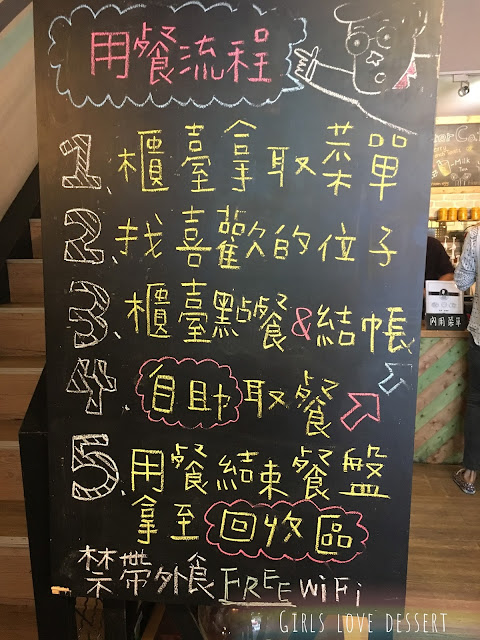 用餐流程
1、櫃臺拿取菜單
2、找喜歡的位子
3、櫃臺點餐&結帳
4、自助取餐
5、用餐結束餐盤
拿至回收區
禁帶外食 FREE WiFi
內用菜單
GIRLS LOVE DESSERT